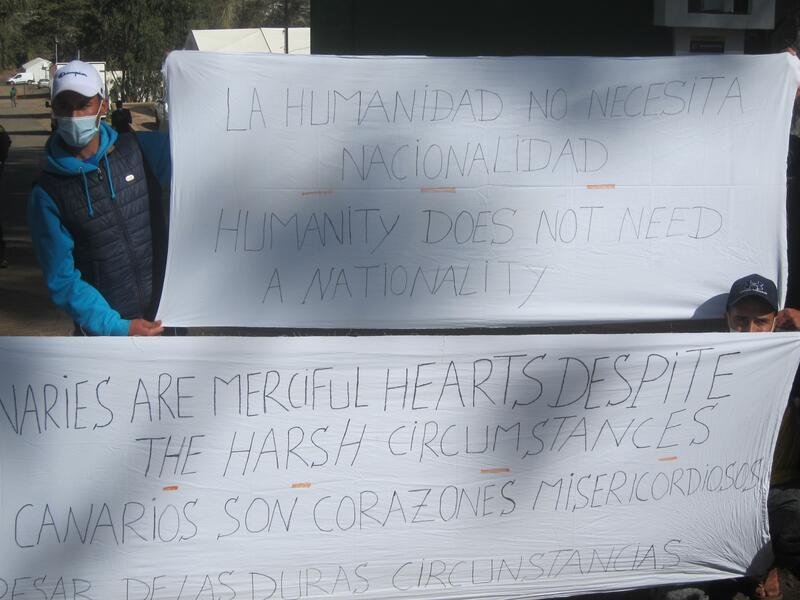 LA HUMANIDAD NO NECESITA
NACIONALIDAD
HUMANITY DOES NOT NEED
A NATIONALITY
NARIES ARE MERCIFUL HEARTS DESPITE
THE HARSH CIRCUMSTANCES
CANARIOS SON CORAZONES MISERICORDIOSOS
PESAR DE LAS DURAS CIRCUNSTANCIAS